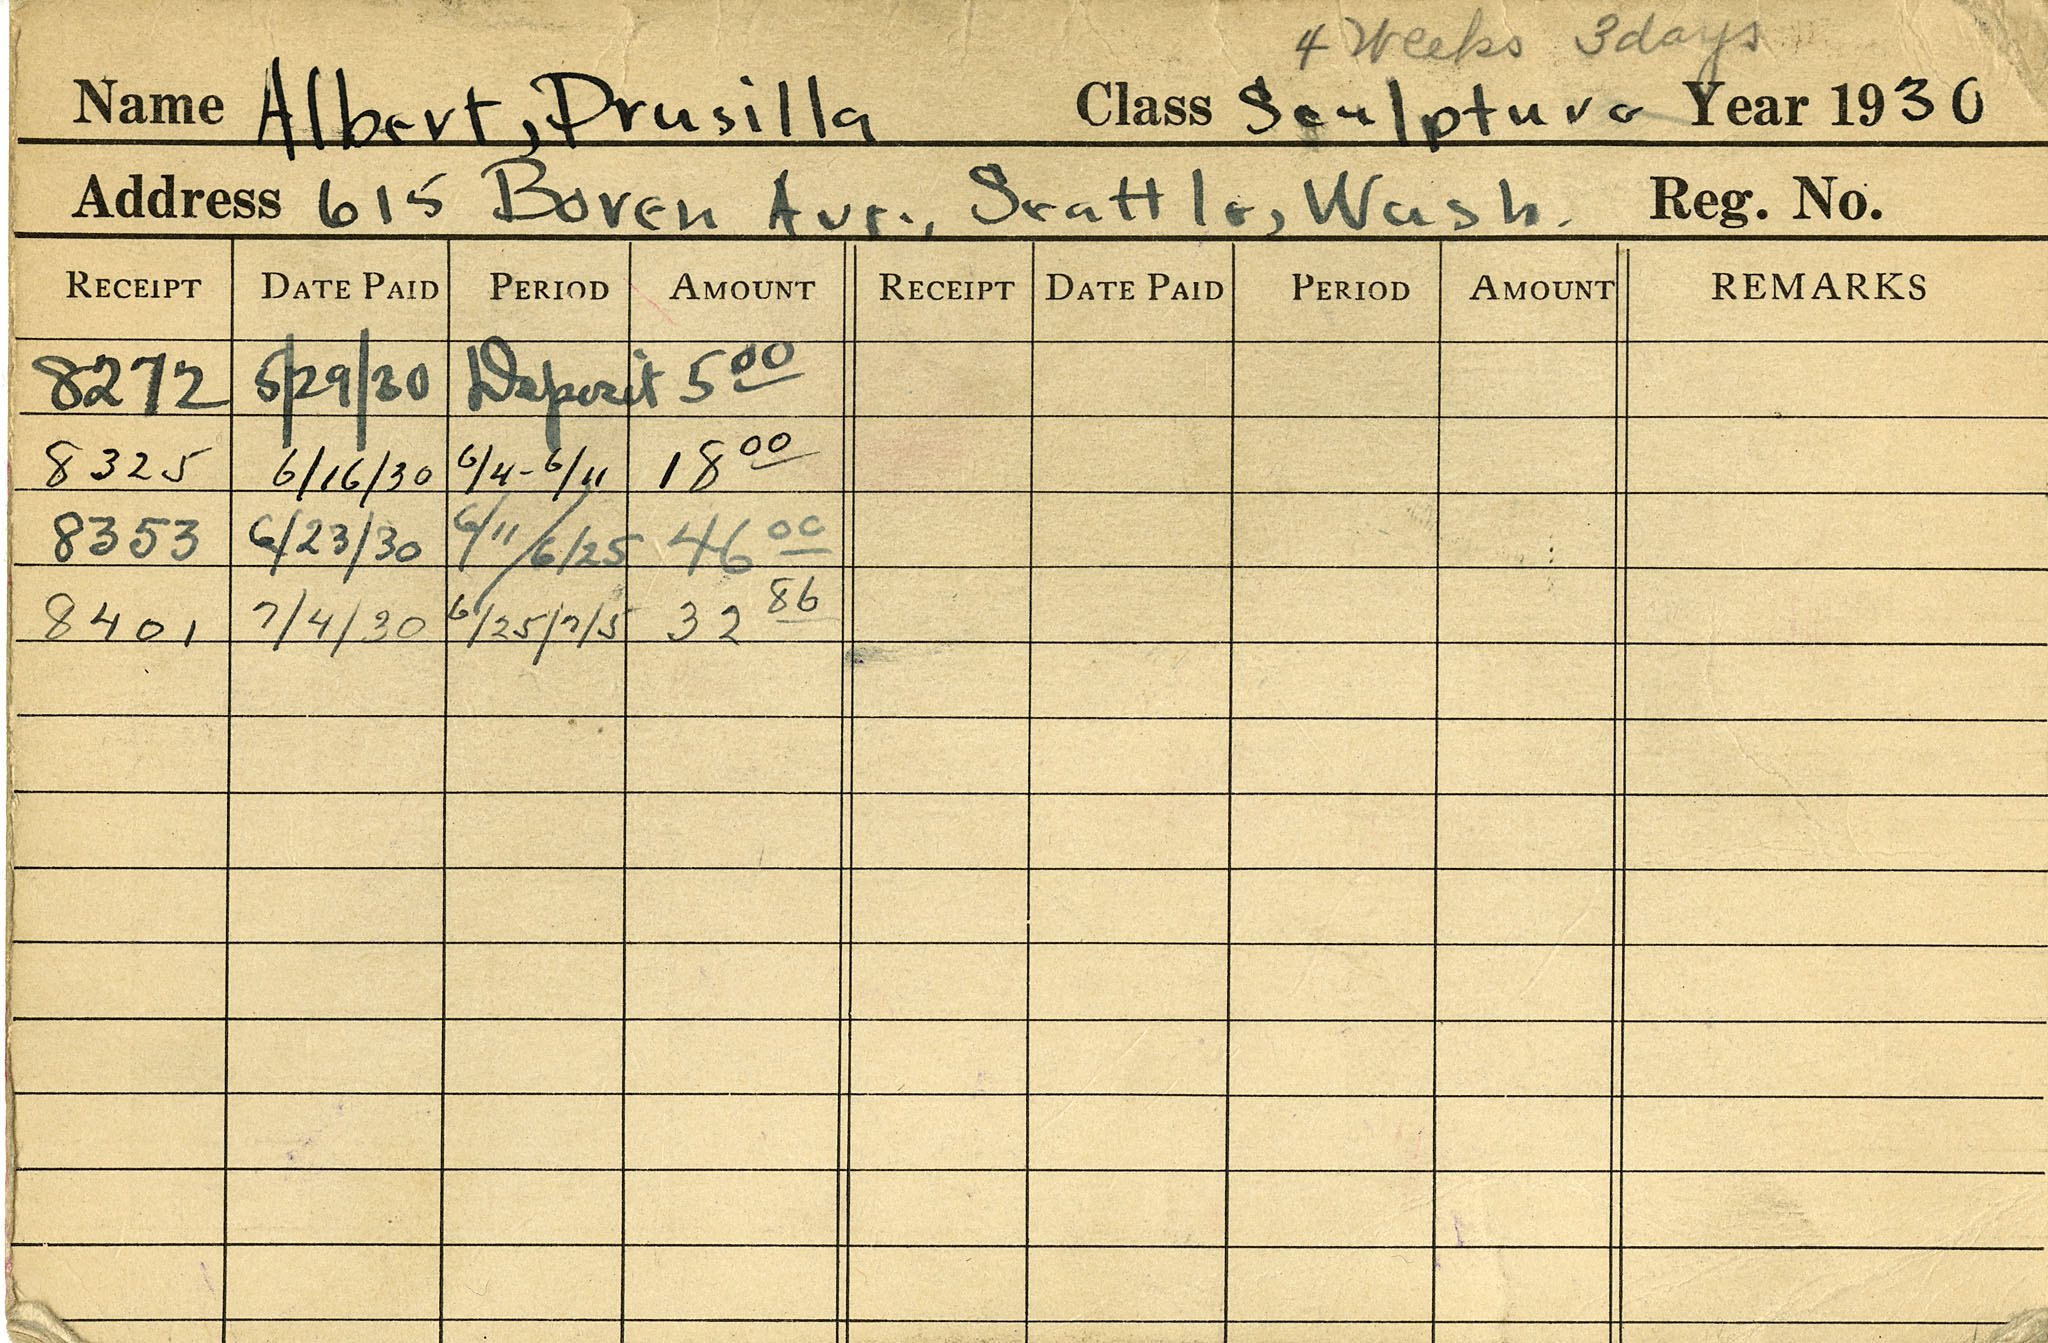 4 Weeks 3 days
Name Albert, Drusilla Class Sculpture Year 1930
Address 615 Boren Ave., Seattle, Wash. Reg. No.
RECEIPT DATE PAID PERIOD AMOUNT RECEIPT DATE PAID PERIOD AMOUNT REMARKS
8272 5/29/30 Deposit 5 00
8325 6/16/30 6/4-6/11 18 00
8353 6/23/30 6/11/6/25 46 00
8401 7/4/30 6/25/7/5 32 86